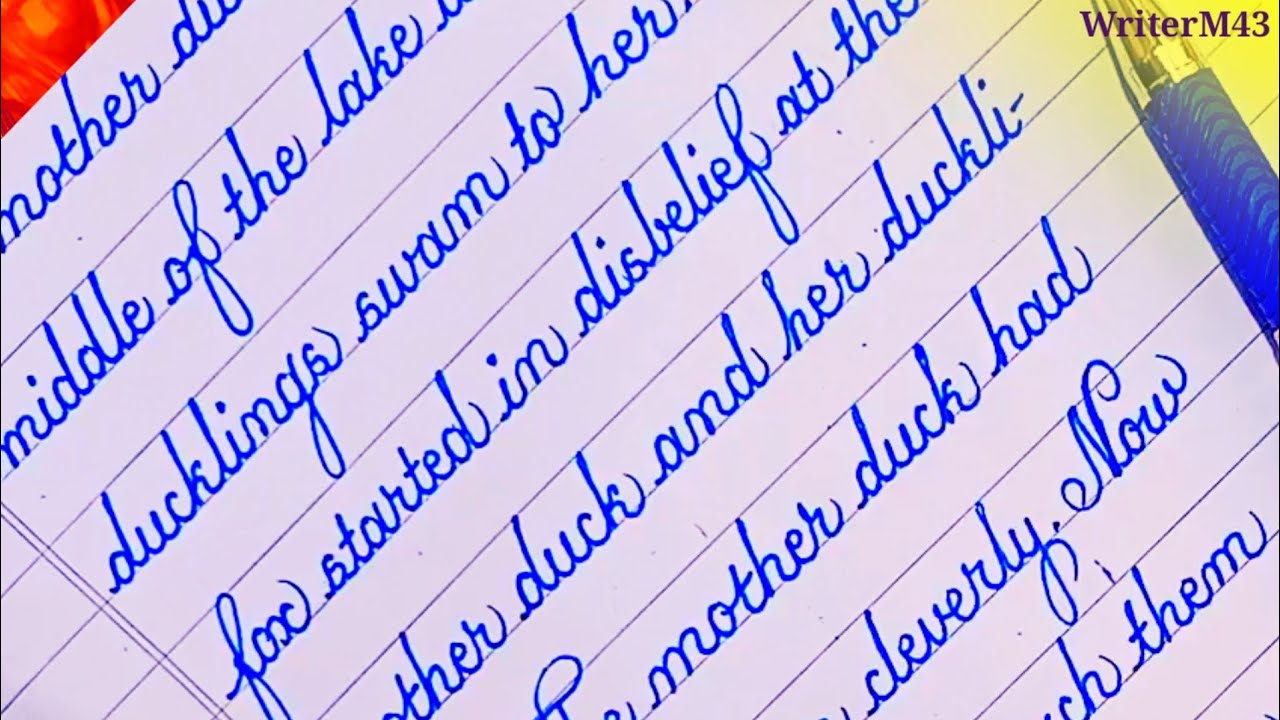 WriterM43
mother
middle of the lake
ducklings swam to her
fox started in disbelief at the
other duck and her duckli-
mother duck had
cleverly. Now
them